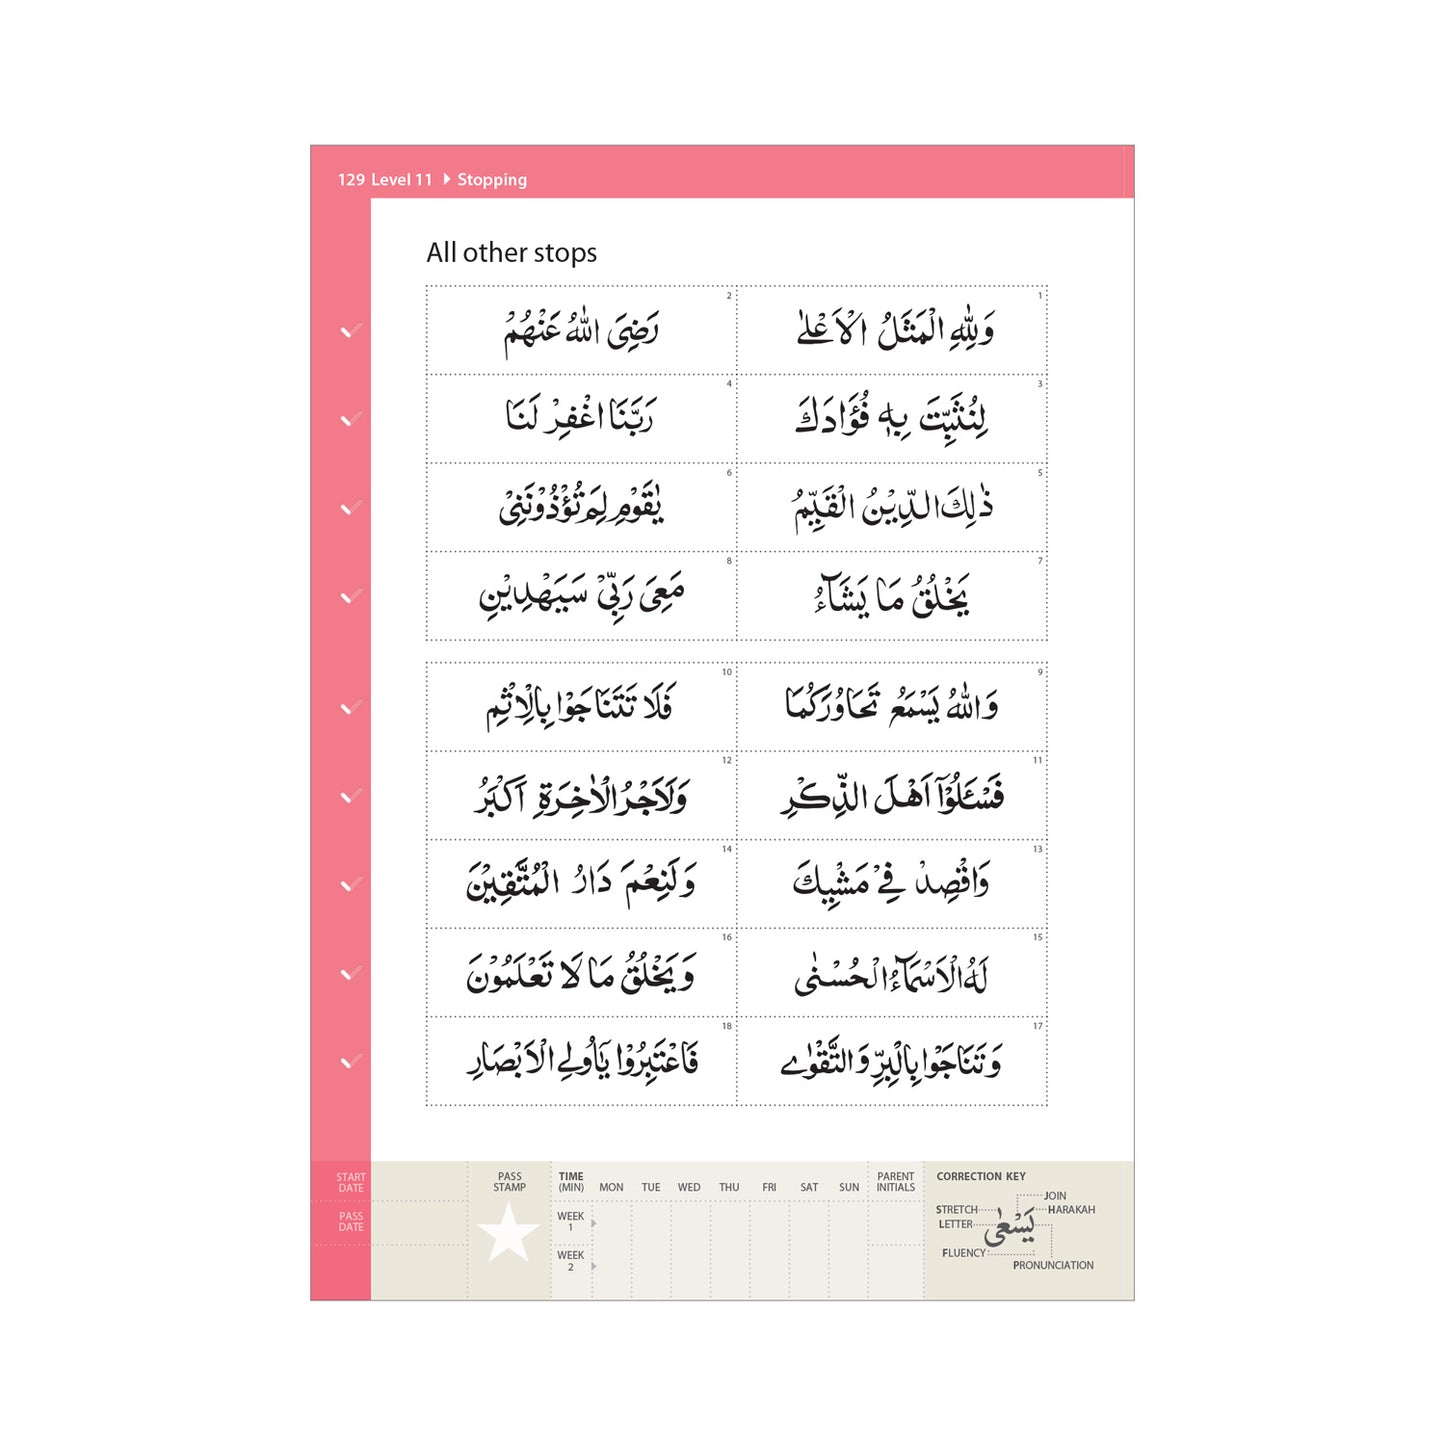 129 Level 11 Stopping
All other stops
1
وَلِلّٰهِ الْمَثَلُ الْاَعْلٰ
2
رَضِىَ اللّٰهُ عَنْهُمْ
3
لِنُثَبِّتَ بِهٖ فُؤَادَكَ
4
رَبَّنَا اغْفِرْ لَنَا
5
ذٰلِكَ الدِّيْنُ الْقَيِّمُ
6
يٰقَوْمِ لِمَ تُؤْذُوْنَنِىْ
7
يَخْلُقُ مَا يَشَآءُ
8
مَعِىَ رَبِّىْ سَيَهْدِيْنِ
9
وَاللّٰهُ يَسْمَعُ تَحَاوُرَكُمَا
10
فَلَا تَتَنَاجَوْا بِالْاِثْمِ
11
فَسْـَٔلُوْٓا اَهْلَ الذِّكْرِ
12
وَلَاَجْرُ الْاٰخِرَةِ اَكْبَرُ
13
وَاقْصِدْ فِىْ مَشْيِكَ
14
وَلَنِعْمَ دَارُ الْمُتَّقِيْنَ
15
لَهُ الْاَسْمَآءُ الْحُسْنٰى
16
وَيَخْلُقُ مَا لَا تَعْلَمُوْنَ
17
وَتَنَاجَوْا بِالْبِرِّ وَالتَّقْوٰے
18
فَاعْتَبِرُوْا يٰٓاُولِى الْاَبْصَارِ
START DATE
PASS DATE
PASS STAMP
TIME (MIN) MON TUE WED THU FRI SAT SUN
WEEK 1
WEEK 2
PARENT INITIALS
CORRECTION KEY
JOIN
STRETCH
HARAKAH
LETTER
يَسْعٰى
FLUENCY
PRONUNCIATION